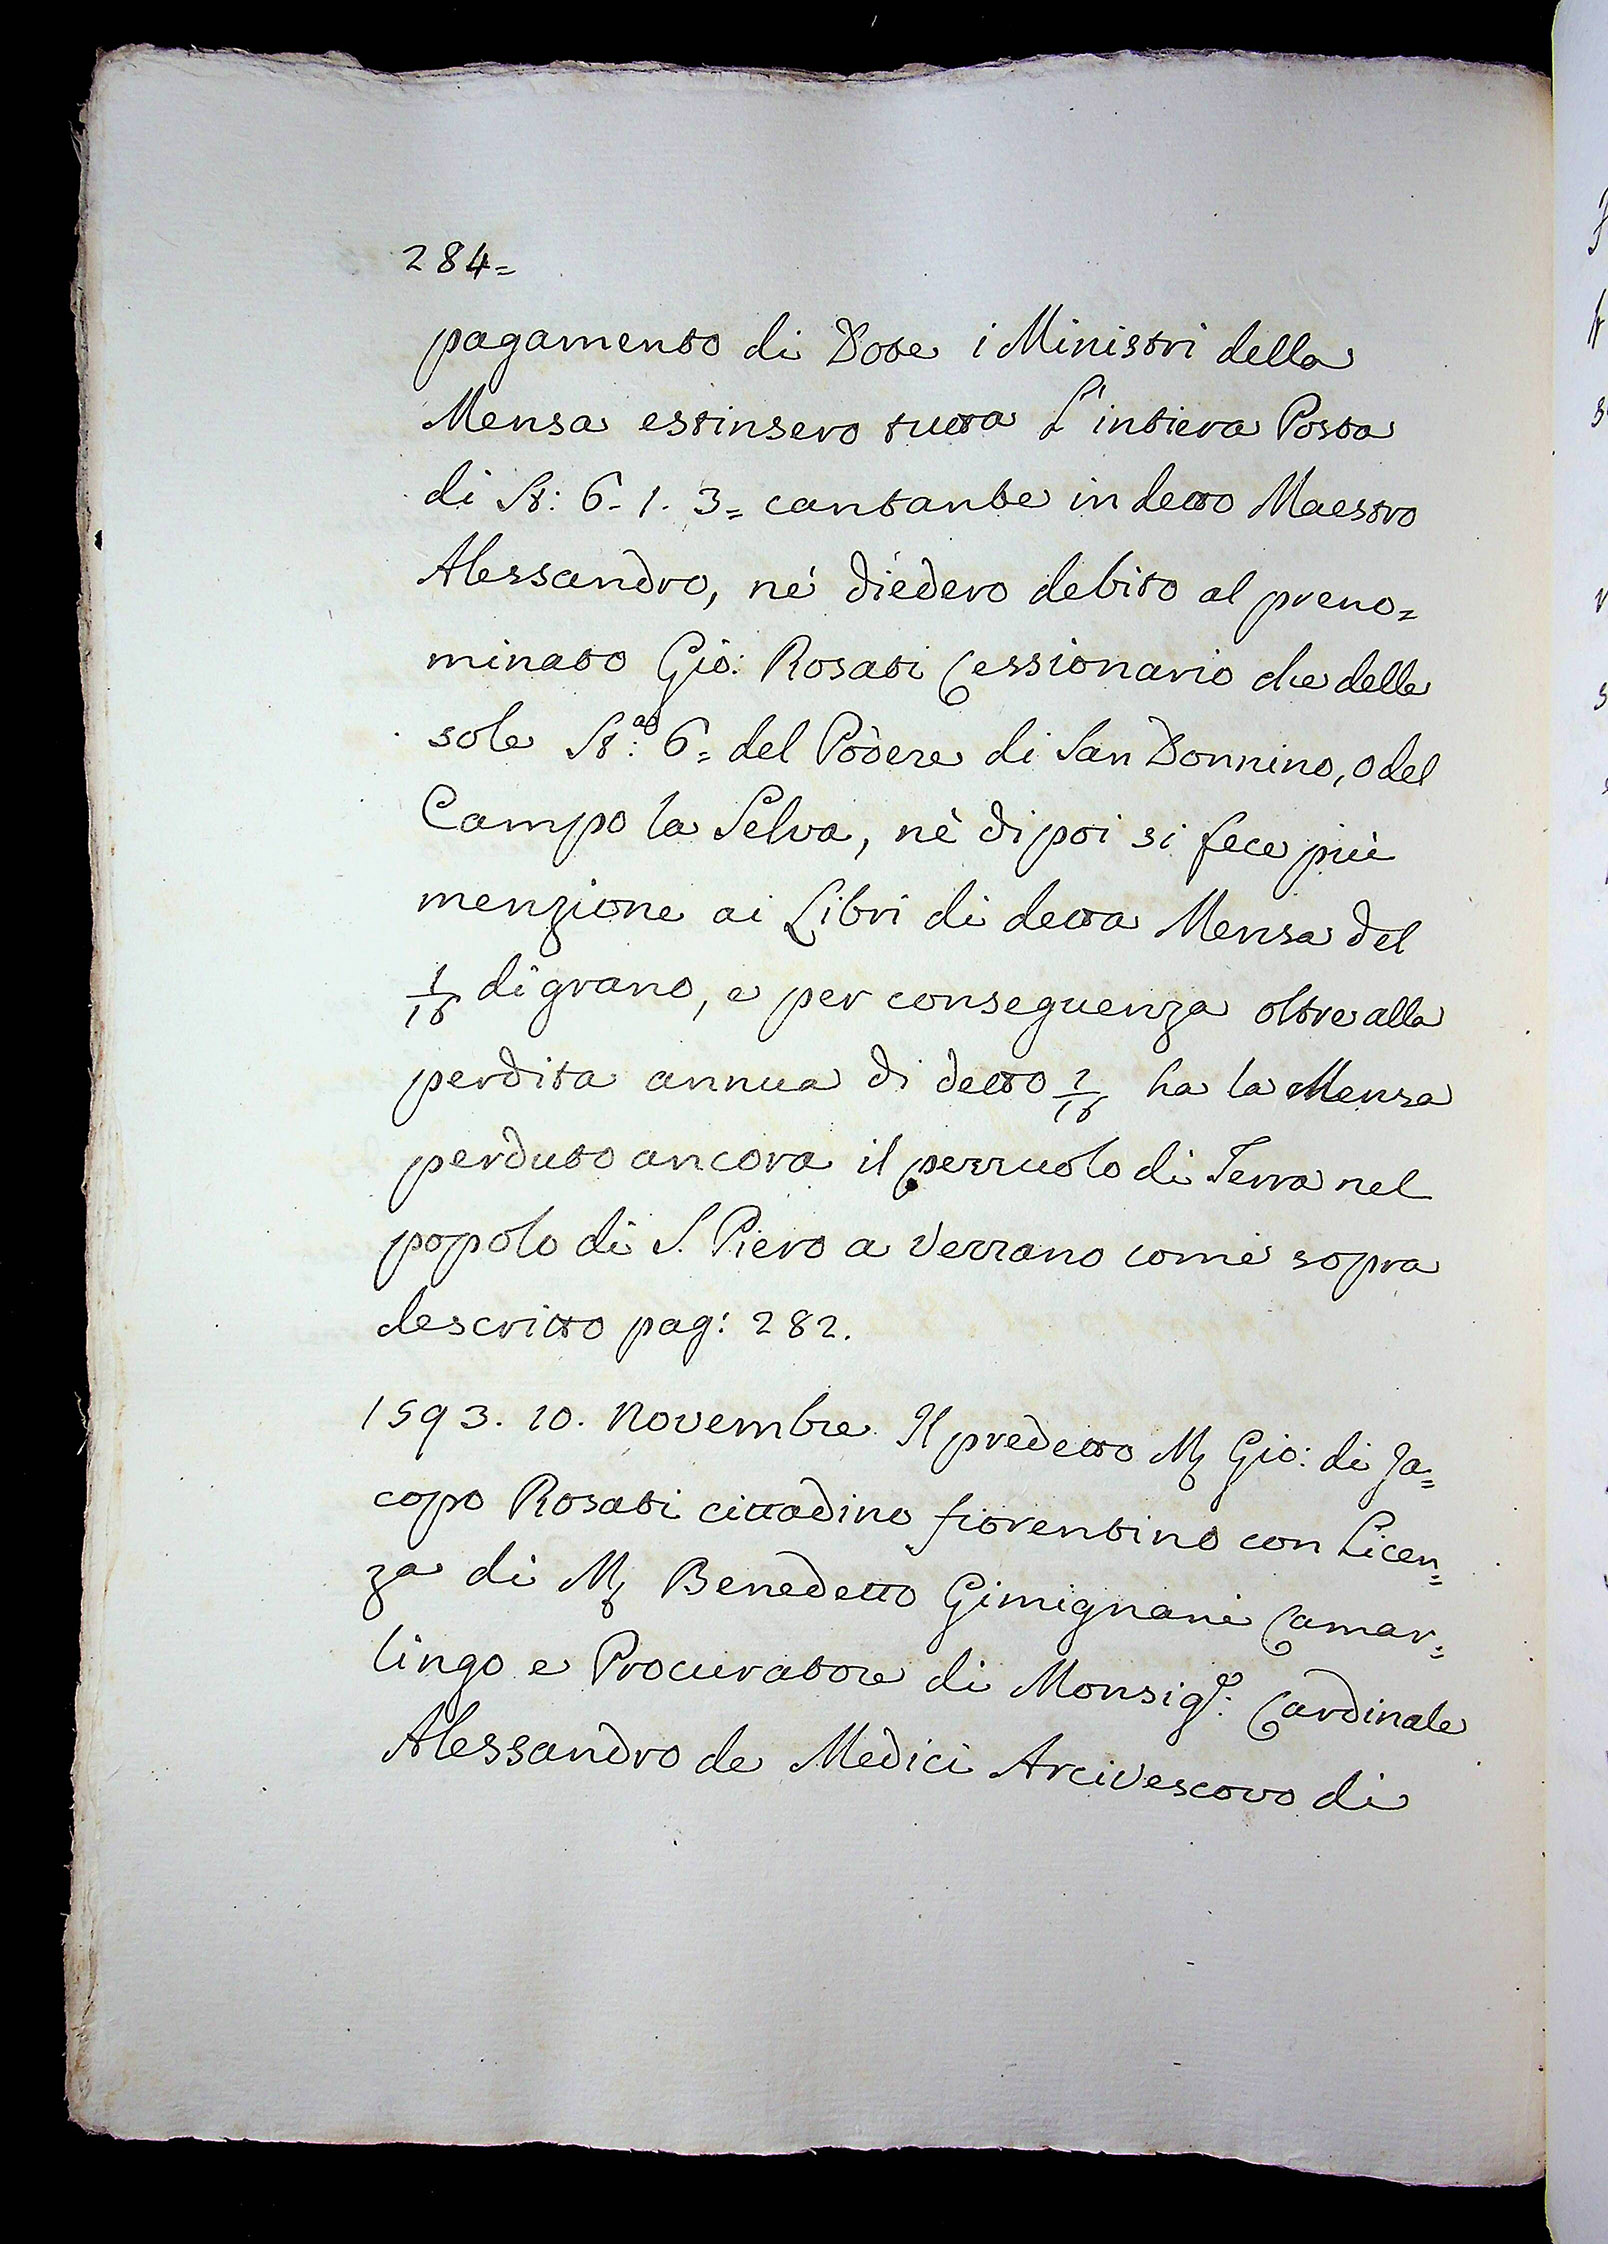 284=
pagamento di Dote i Ministri della
Mensa estinsero tutta L'intiera Posta
di St: 6. 1. 3= cantante in detto Maestro
Alessandro, nè diedero debito al preno=
minato Gio: Rosati Cessionario che delle
sole St:a 6= del Podere di San Donnino, o del
Campo la Selva, nè dipoi si fece più
menzione ai Libri di detta Mensa del
1/16 di grano, e per conseguenza oltre alla
perdita annua di detto 1/16 ha la Mensa
perduto ancora il pezzuolo di Terra nel
popolo di S. Piero a Verzano come sopra
descritto pag: 282.
1593. 10. Novembre Il predetto M Gio: di Ja=
copo Rosati cittadino fiorentino con Licen=
za di M Benedetto Gimignani Camar=
lingo e Procuratore di Monsig.e: Cardinale
Alessandro de Medici Arcivescovo di